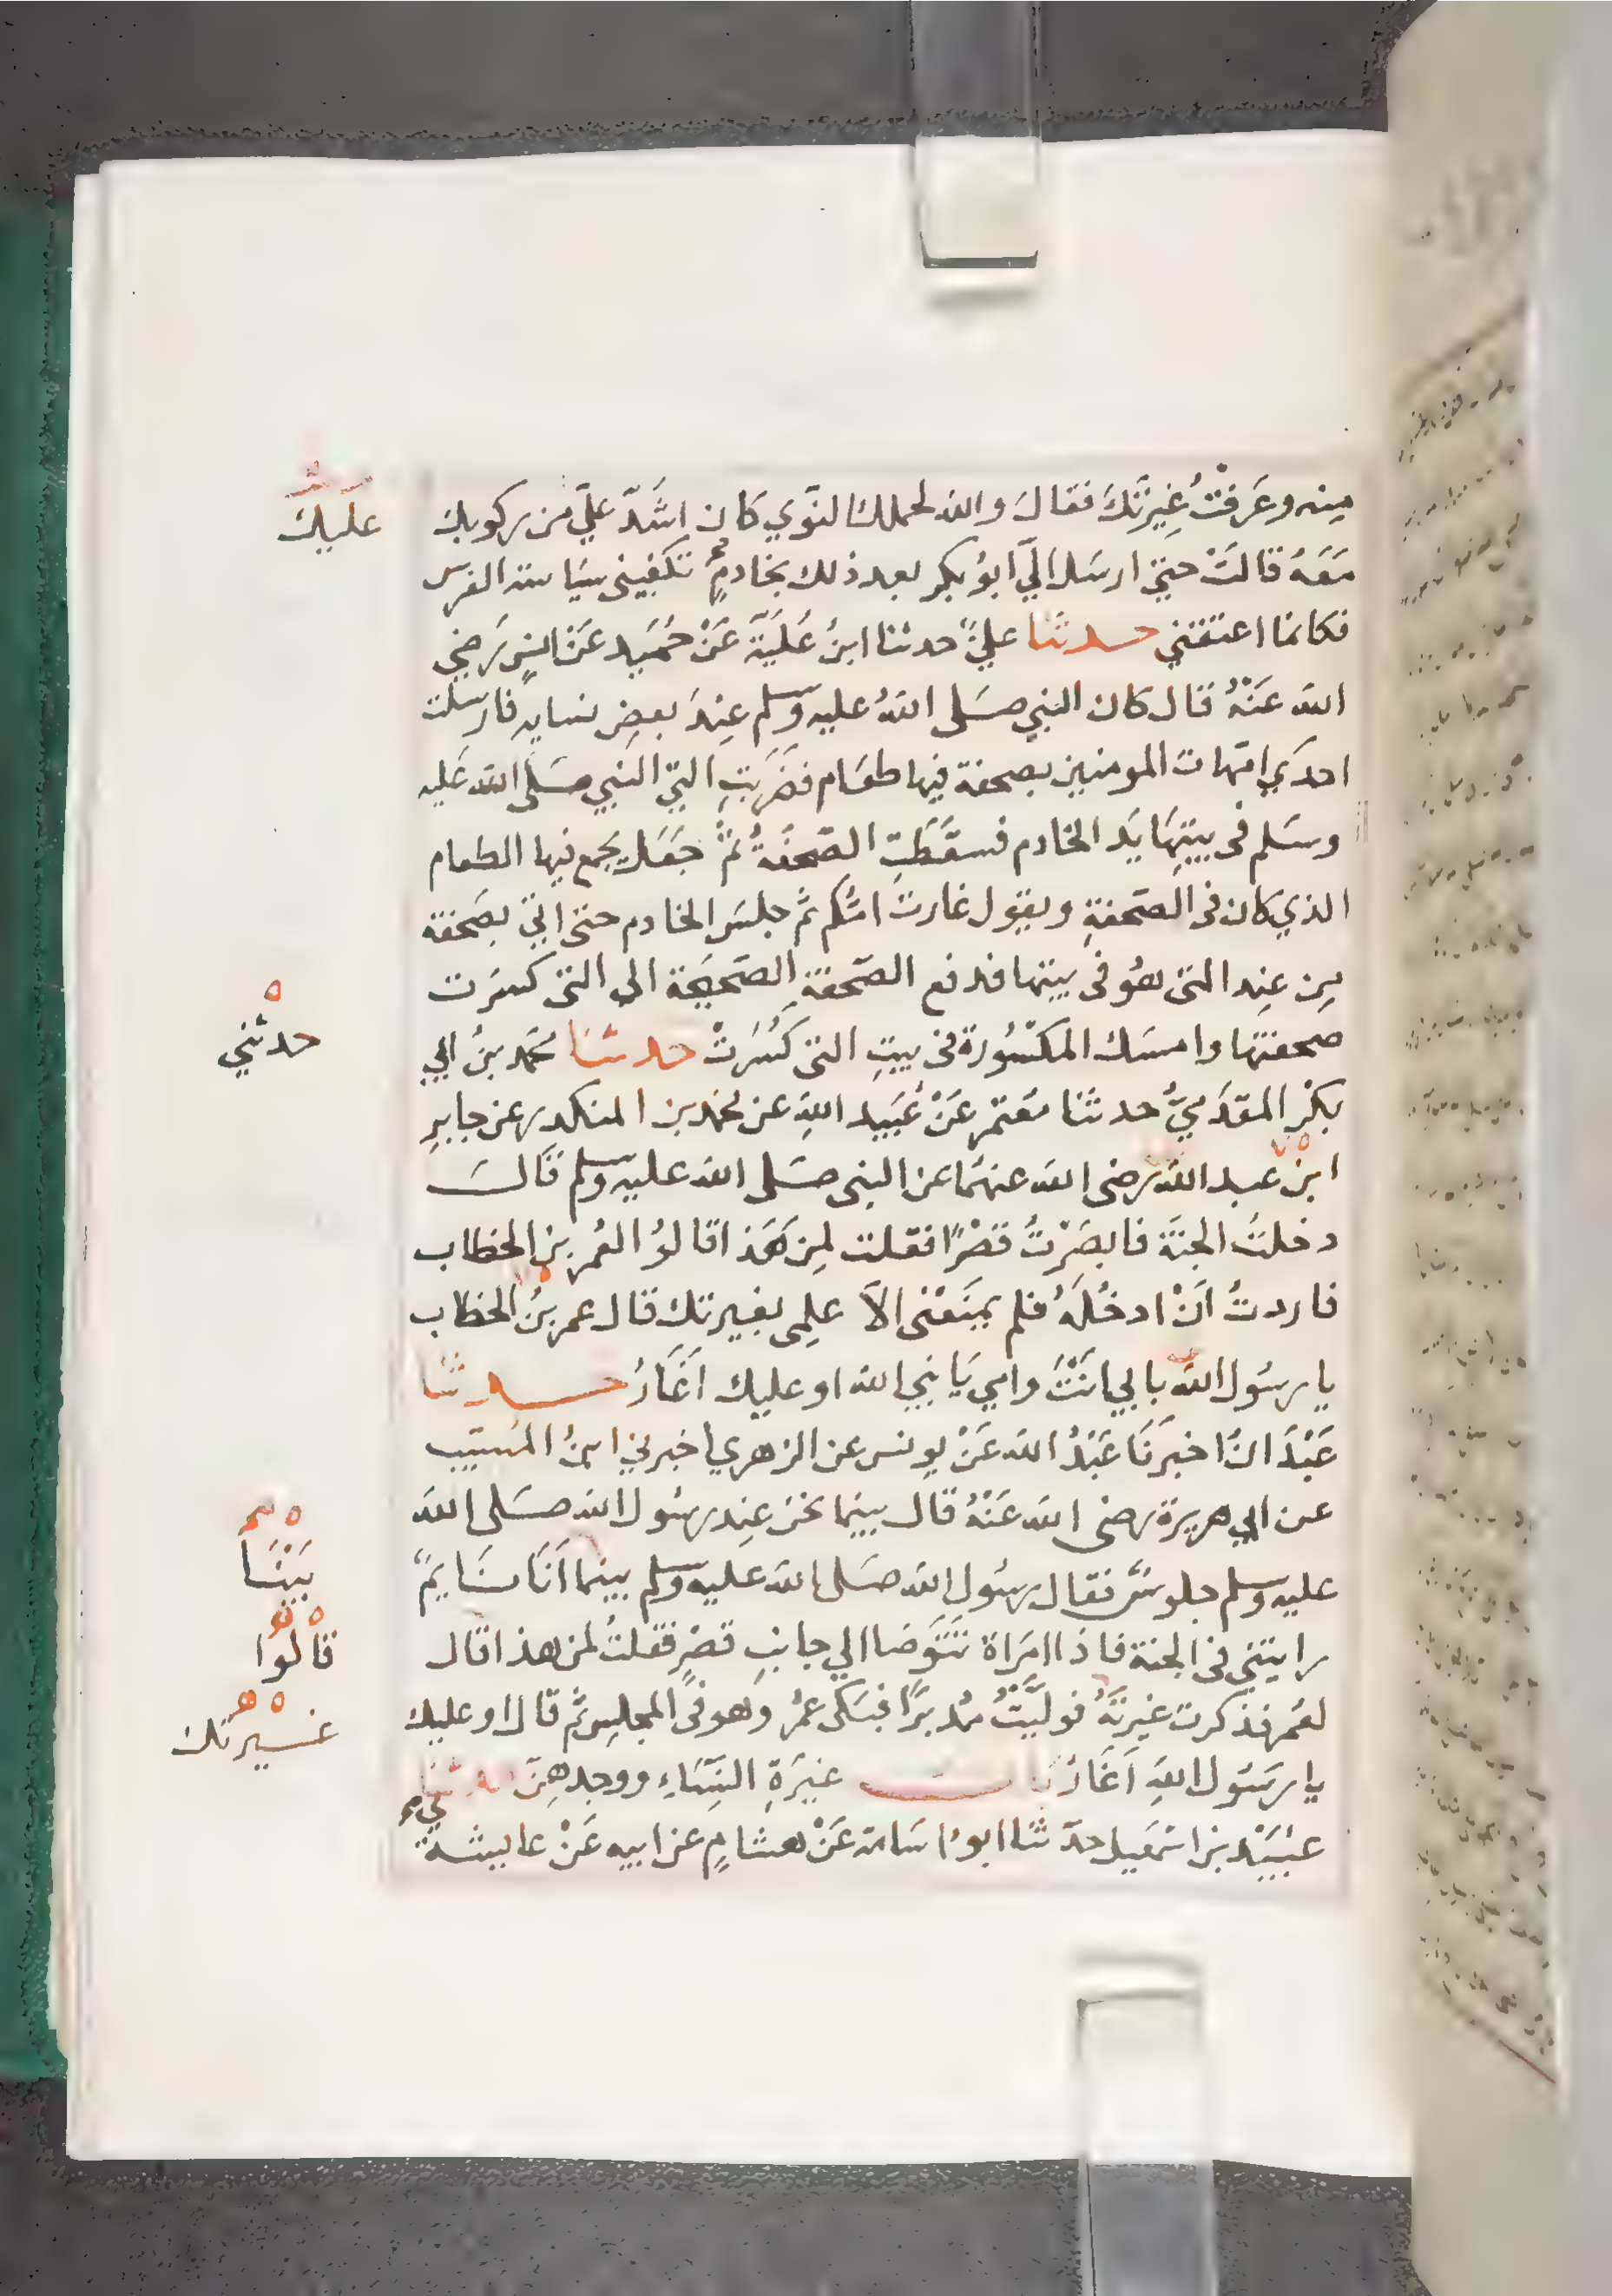 منه وعَرفْتُ غِيرتَكَ فقالَ والله لحملك النَّوي كان اشدَّ عليَّ من ركوبك
مَعَهُ قالتْ حتي ارسَل اليَّ ابُو بكر بعد ذلك بخادمٍ تكفيني سياسة الفرس
فكانما اعتقني حدثنا عليٌّ حدثنا ابنُ عُلَيَّةَ عَنْ حُمَيد عَنْ انسٍ رَضي
الله عَنْهُ قال كان النبي صَلى اللهُ عليه وسلم عِندَ بعضِ نسايه فارسلت
احدَي امّهات المومنين بصحفة فيها طعَام فضَرَبَتِ التي النبي صَلى الله عَليه
وسَلم في بيتِهَا يَد الخادم فسقَطَتِ الصَّحفَةُ ثمَّ جَعَل يجمع فيها الطعام
الذي كان في الصَّحفةِ ويقول غارتْ امّكم ثمَّ جلسَ الخادم حتى اتي بصَحفة
مِن عِند التي هُو في بيتها فدفع الصَّحفةَ الصَّحِيحَة الى التي كسرَت
صحفتها وامسَك المكسُورة في بيتِ التي كَسَرتْ حدثنا محَمد بنُ ابي
بكْر المقدَّميُّ حدثنا معتمر عَنْ عُبَيد اللهِ عن محمد بن المنكدر عن جابرِ
ابن عبد الله رَضى الله عنهمَا عن النبى صَلى الله عليه وسلم قال
دخلتُ الجنَّة فابصَرْتُ قصْرًا فقلت لِمن هَذا قالوُا لعُمر بن الخطاب
فاردتُ اَنْ ادخُلَهُ فلم يمنَعْني الاَّ علمِي بغيرتك قال عمر بنُ الخطاب
يا رسُول الله بابي انتَ وامي يَا نبي الله او عليك اَغَارُ حدثنا
عَبْدَانُ اخبرَنَا عَبْدُ الله عَنْ يونس عن الزهري اخبرني ابنُ المسَيّب
عن ابي هريرة رضى الله عَنْهُ قال بينما نحن عِند رسُول الله صَلى الله
عليه وسلم جلوسٌ فقال رسُول الله صَلى الله عليه وسلم بينما اَنَا نَايمٌ
رايتني في الجنة فاذا امرَاة تتوَضا الي جانبِ قصْرٍ فقلتُ لمن هذا قال
لعُمر فذكرت غيرتَهُ فولَّيْتُ مُدبرًا فبَكى عمرُ وَهو في المجلِس ثمَّ قال او عليك
يا رسَول اللهِ اَغَارُ باب غَيرَةِ النِّسَاءِ ووجدهِنّ حدثنا
عبُيَدْ بن اسمعيل حدّثنا ابو اسَامة عَنْ هشامٍ عن ابيه عَنْ عايشة
عليك
حدثني
بَيْنَا
قالوُا
غيرتك